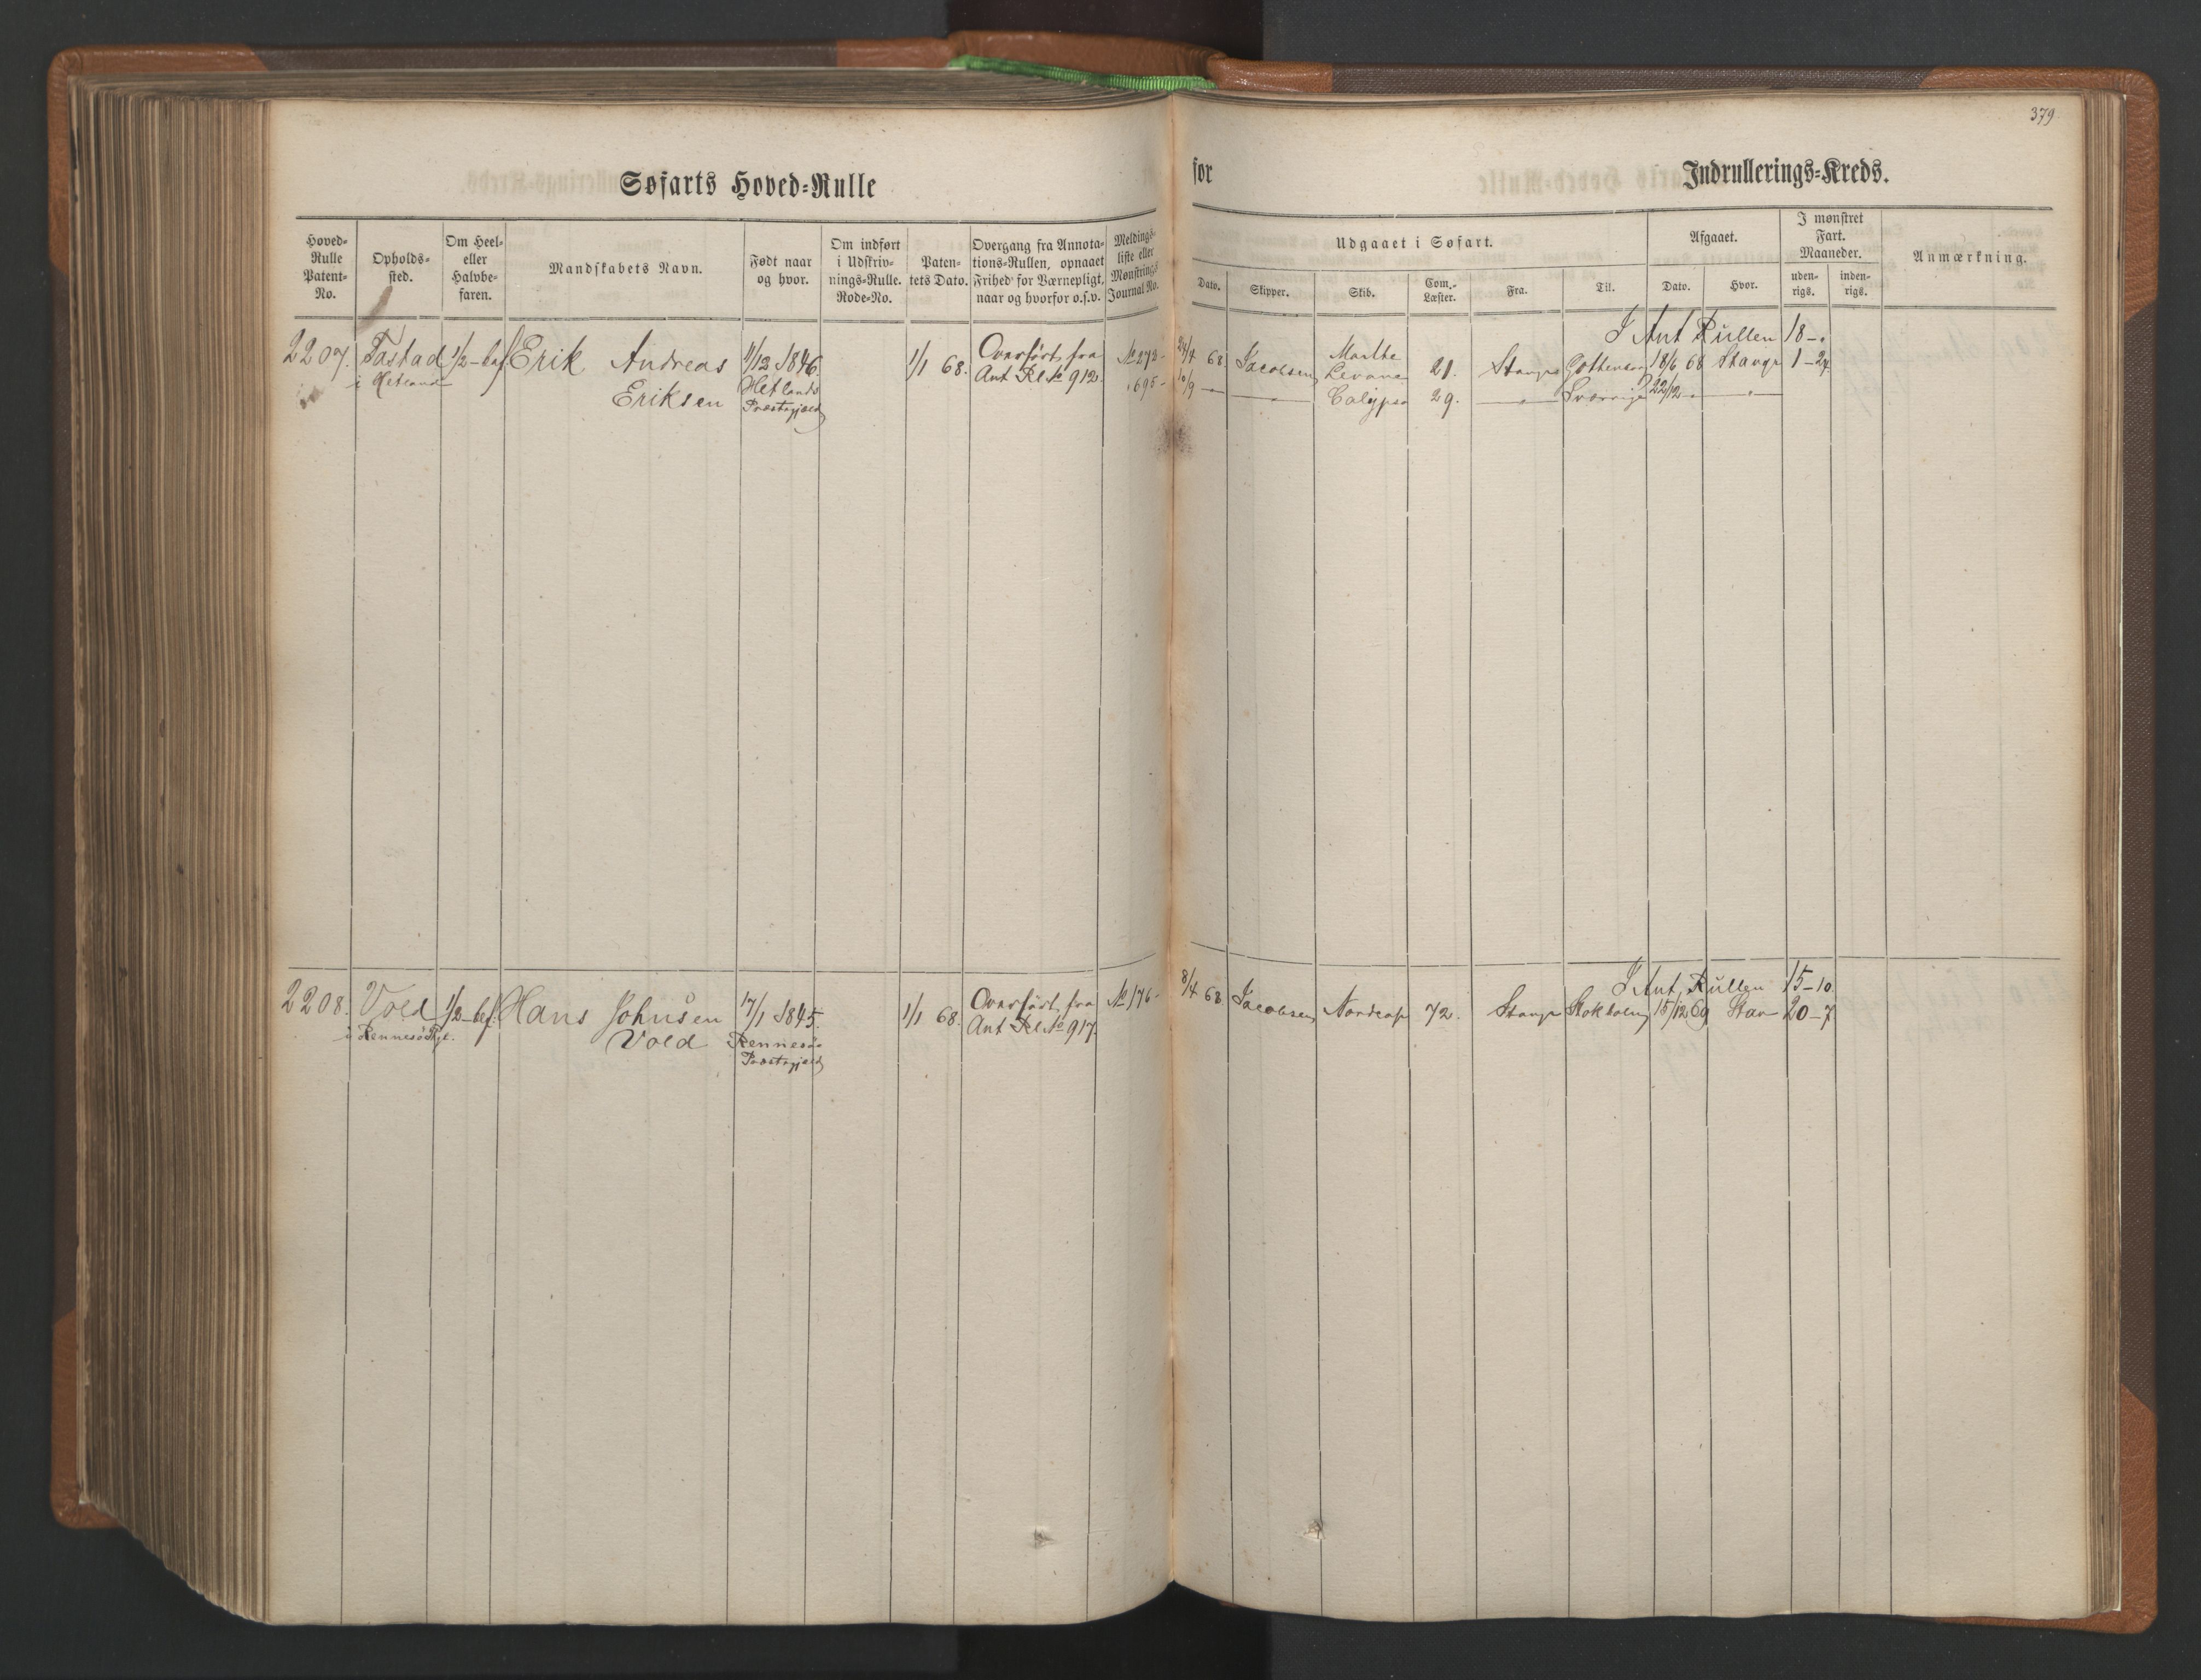 379
Søfarts Hoved-Rulle
for Indrullerings-Kreds.
Hoved-Rulle Patent-No.
Opholds-sted.
Om Heel- eller Halvbe-faren.
Mandskabets Navn.
Født naar og hvor.
Om indført i Udskriv-nings-Rulle. Rode-No.
Paten-tets Dato.
Overgang fra Annota-tions-Rullen, opnaaet Frihed for Værnepligt, naar og hvorfor o.s.v.
Meldings-liste eller Mønstrings Journal No.
Udgaaet i Søfart.
Dato.
Skipper.
Skib.
Com.-Læster.
Fra.
Til.
Afgaaet.
Dato.
Hvor.
I mønstret Fart. Maaneder.
uden-rigs.
inden-rigs.
Anmærkning.
I Ant Rullen 18 -"
2207. Tastad 1/2-bef. Erik Andreas 11/12 1846. 1/1 68. Overført fra No 273- 24/4 68 Jacobsen Marthe
i Hetland Eriksen Hetlands Ant Rl No 912. Levane 21. Stavgr Gottenborg 18/6 68 Stavgr 1-24
Præstegjæld " 695- 10/9 — — " — Calypso 29. — " — Sverrige 22/12 - — " —
I Ant. Rullen 15-10.
2208. Vold 1/2-bef. Hans Johnsen 17/1 1845. 1/1 68. Overført fra No 176- 8/4 68 Jacobsen Nordcap 72. Stavgr Stokholm 15/12 69 Stav 20-7
i Rennesø Pgl. Vold Rennesø Ant Rl No 917.
Præstegjæld